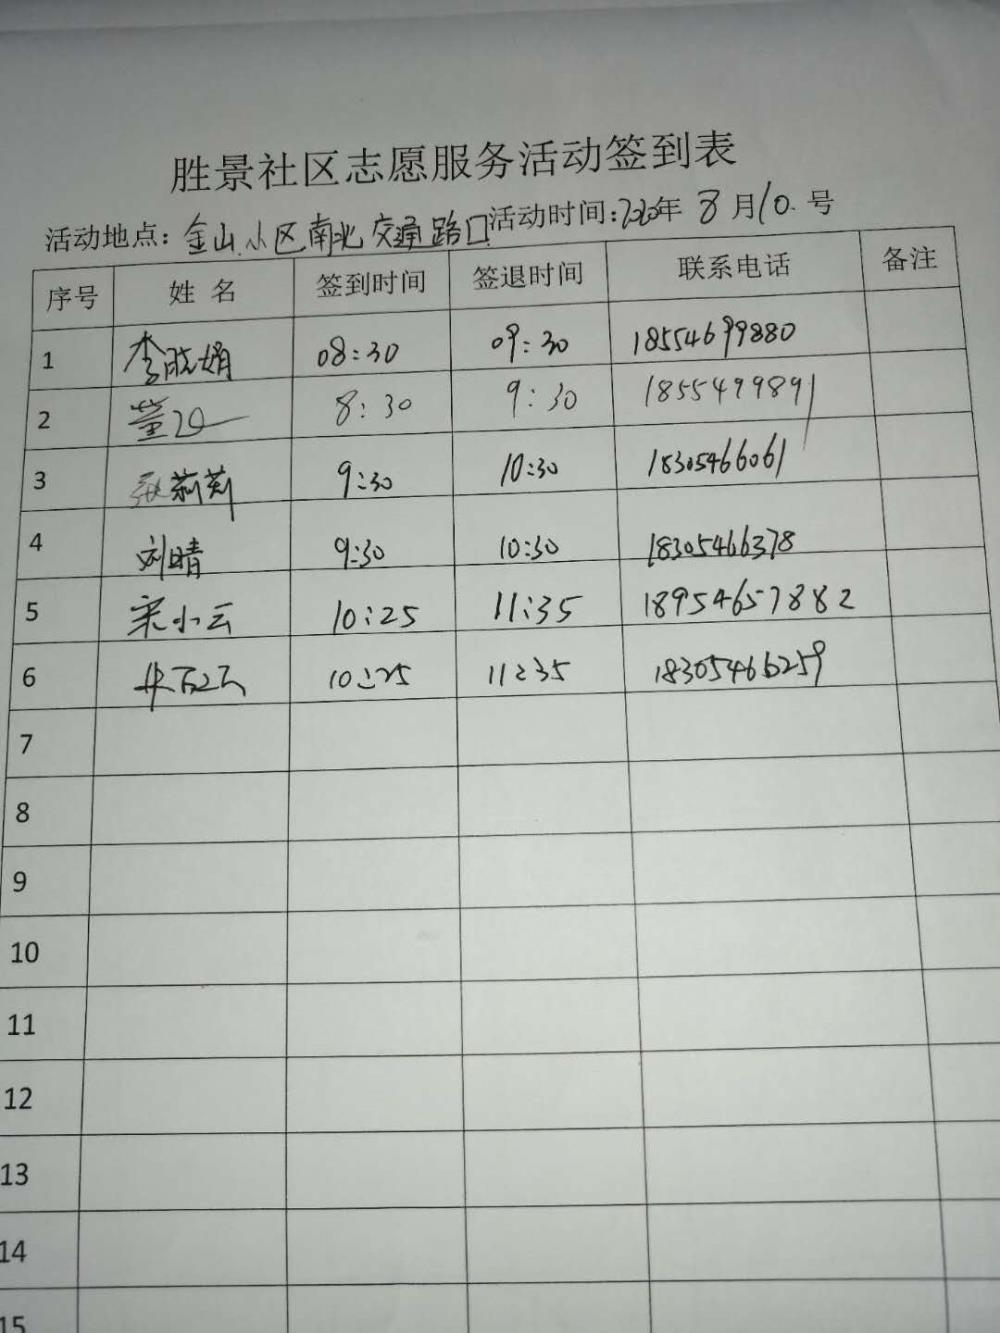 胜景社区志愿服务活动签到表
活动地点：金山小区南北交通路口 活动时间：2020年 8月10号
序号 姓名 签到时间 签退时间 联系电话 备注
1 李晓娟 08:30 09:30 18554699880
2 董 8:30 9:30 1855499891
3 张莉莉 9:30 10:30 18305466061
4 刘晴 9:30 10:30 18305466378
5 宋小云 10:25 11:35 18954657882
6 10:25 11:35 18305466259
7
8
9
10
11
12
13
14
15